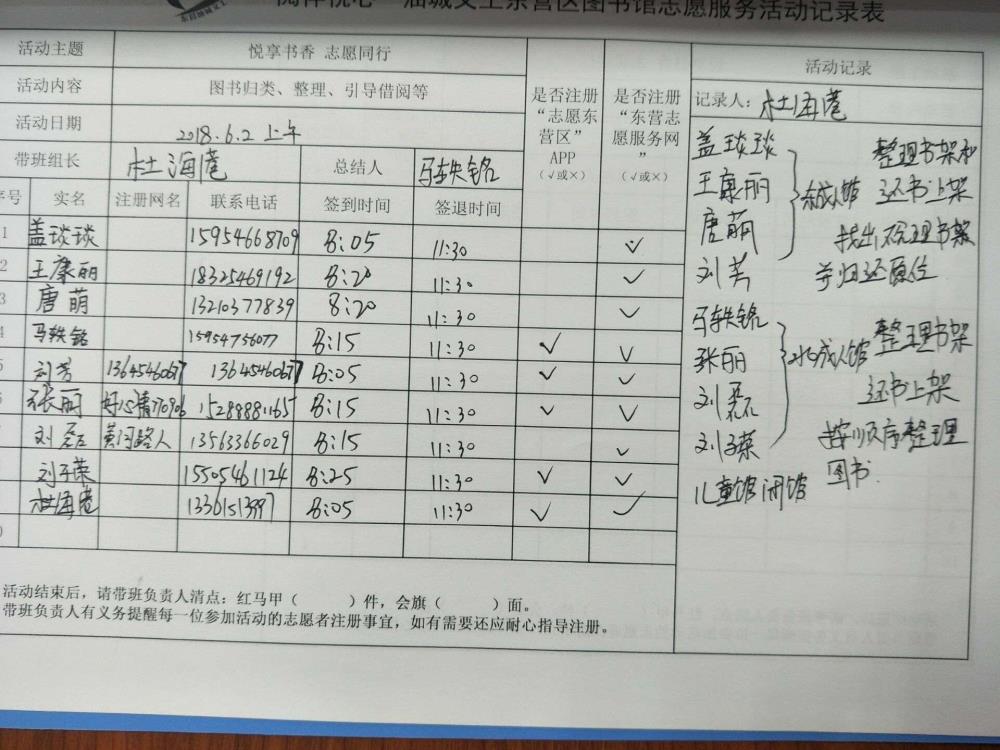 油城义工东营区图书馆志愿服务活动记录表
活动主题 悦享书香 志愿同行
活动内容 图书归类、整理、引导借阅等
活动日期 2018.6.2 上午
带班组长 杜海苍 总结人 马轶铭
是否注册“志愿东营区”APP（√或×）
是否注册“东营志愿服务网”（√或×）
序号 实名 注册网名 联系电话 签到时间 签退时间
1 盖琰琰 15954668709 8:05 11:30 √
2 王康丽 18325469192 8:20 11:30 √
3 唐萌 13210377839 8:20 11:30 √
4 马轶铭 15954756077 8:15 11:30 √ √
5 刘芳 13645460677 13645460677 8:05 11:30 √ √
张丽 好心情770906 15288881165 8:15 11:30 √ √
刘磊 黄河路人 13563366029 8:15 11:30 √
刘子荣 15505461124 8:25 11:30 √ √
杜海苍 13361513997 8:05 11:30 √ √
活动结束后，请带班负责人清点：红马甲（ ）件，会旗（ ）面。
带班负责人有义务提醒每一位参加活动的志愿者注册事宜，如有需要还应耐心指导注册。
活动记录
记录人：杜海苍
盖琰琰
王康丽
唐萌
刘芳
东成人馆
整理书架和
还书上架
找出不合理书架
并归还原位
马轶铭
张丽
刘磊
刘子荣
北成人馆
整理书架
还书上架
按顺序整理
图书.
儿童馆闭馆